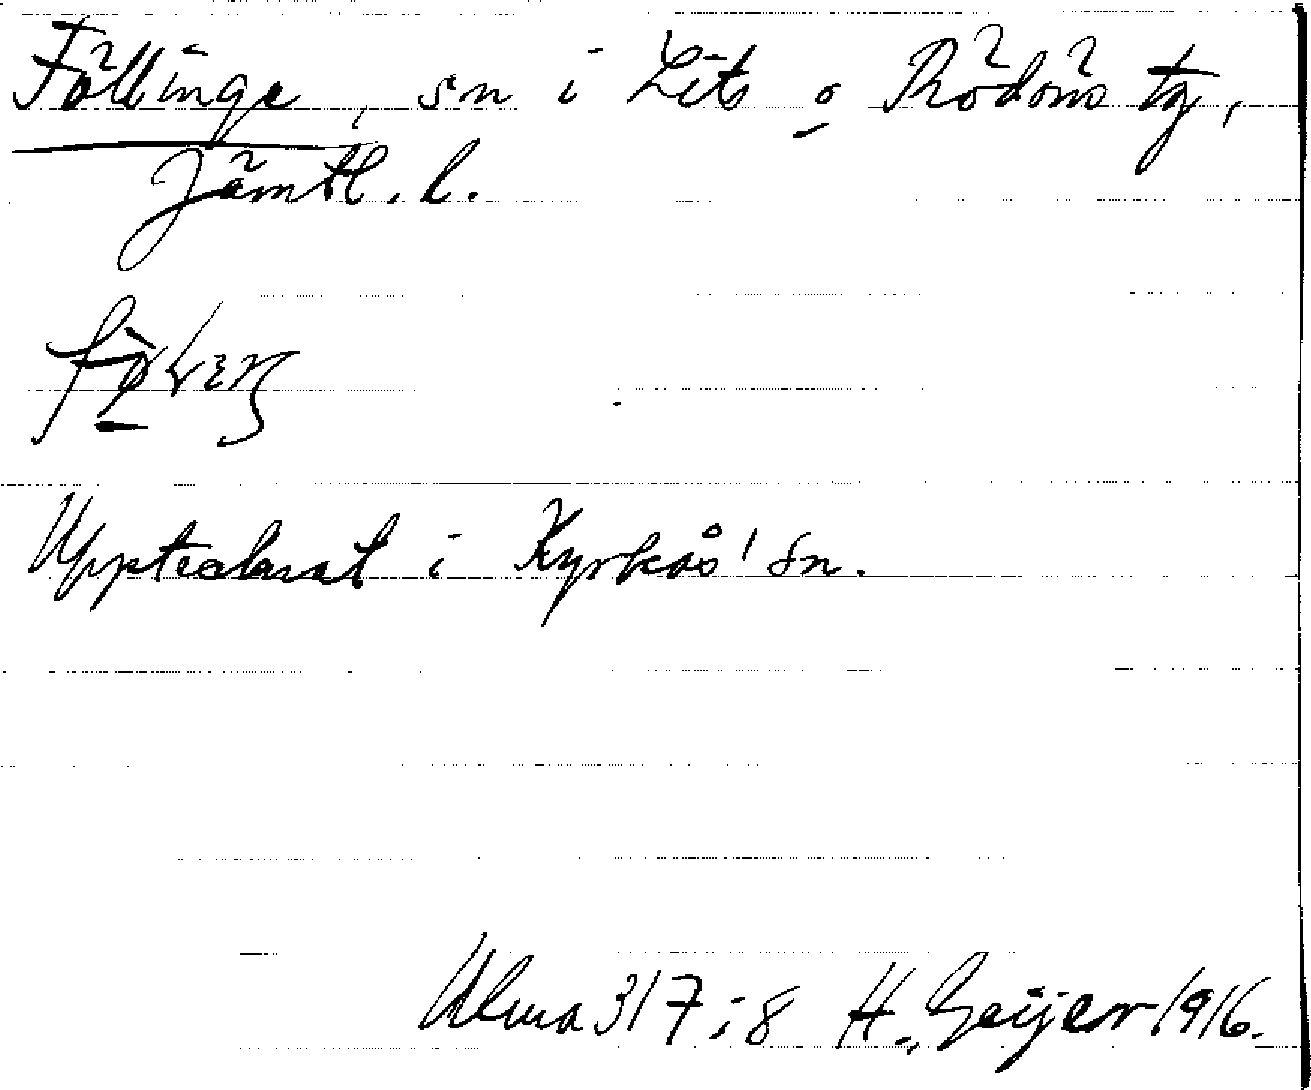 Föllinge, sn i Lits o Rödöns tg,
Jämtl. l.
Upptecknat i Kyrkås' sn.
Ulma 317:8 H. Geijer 1916.